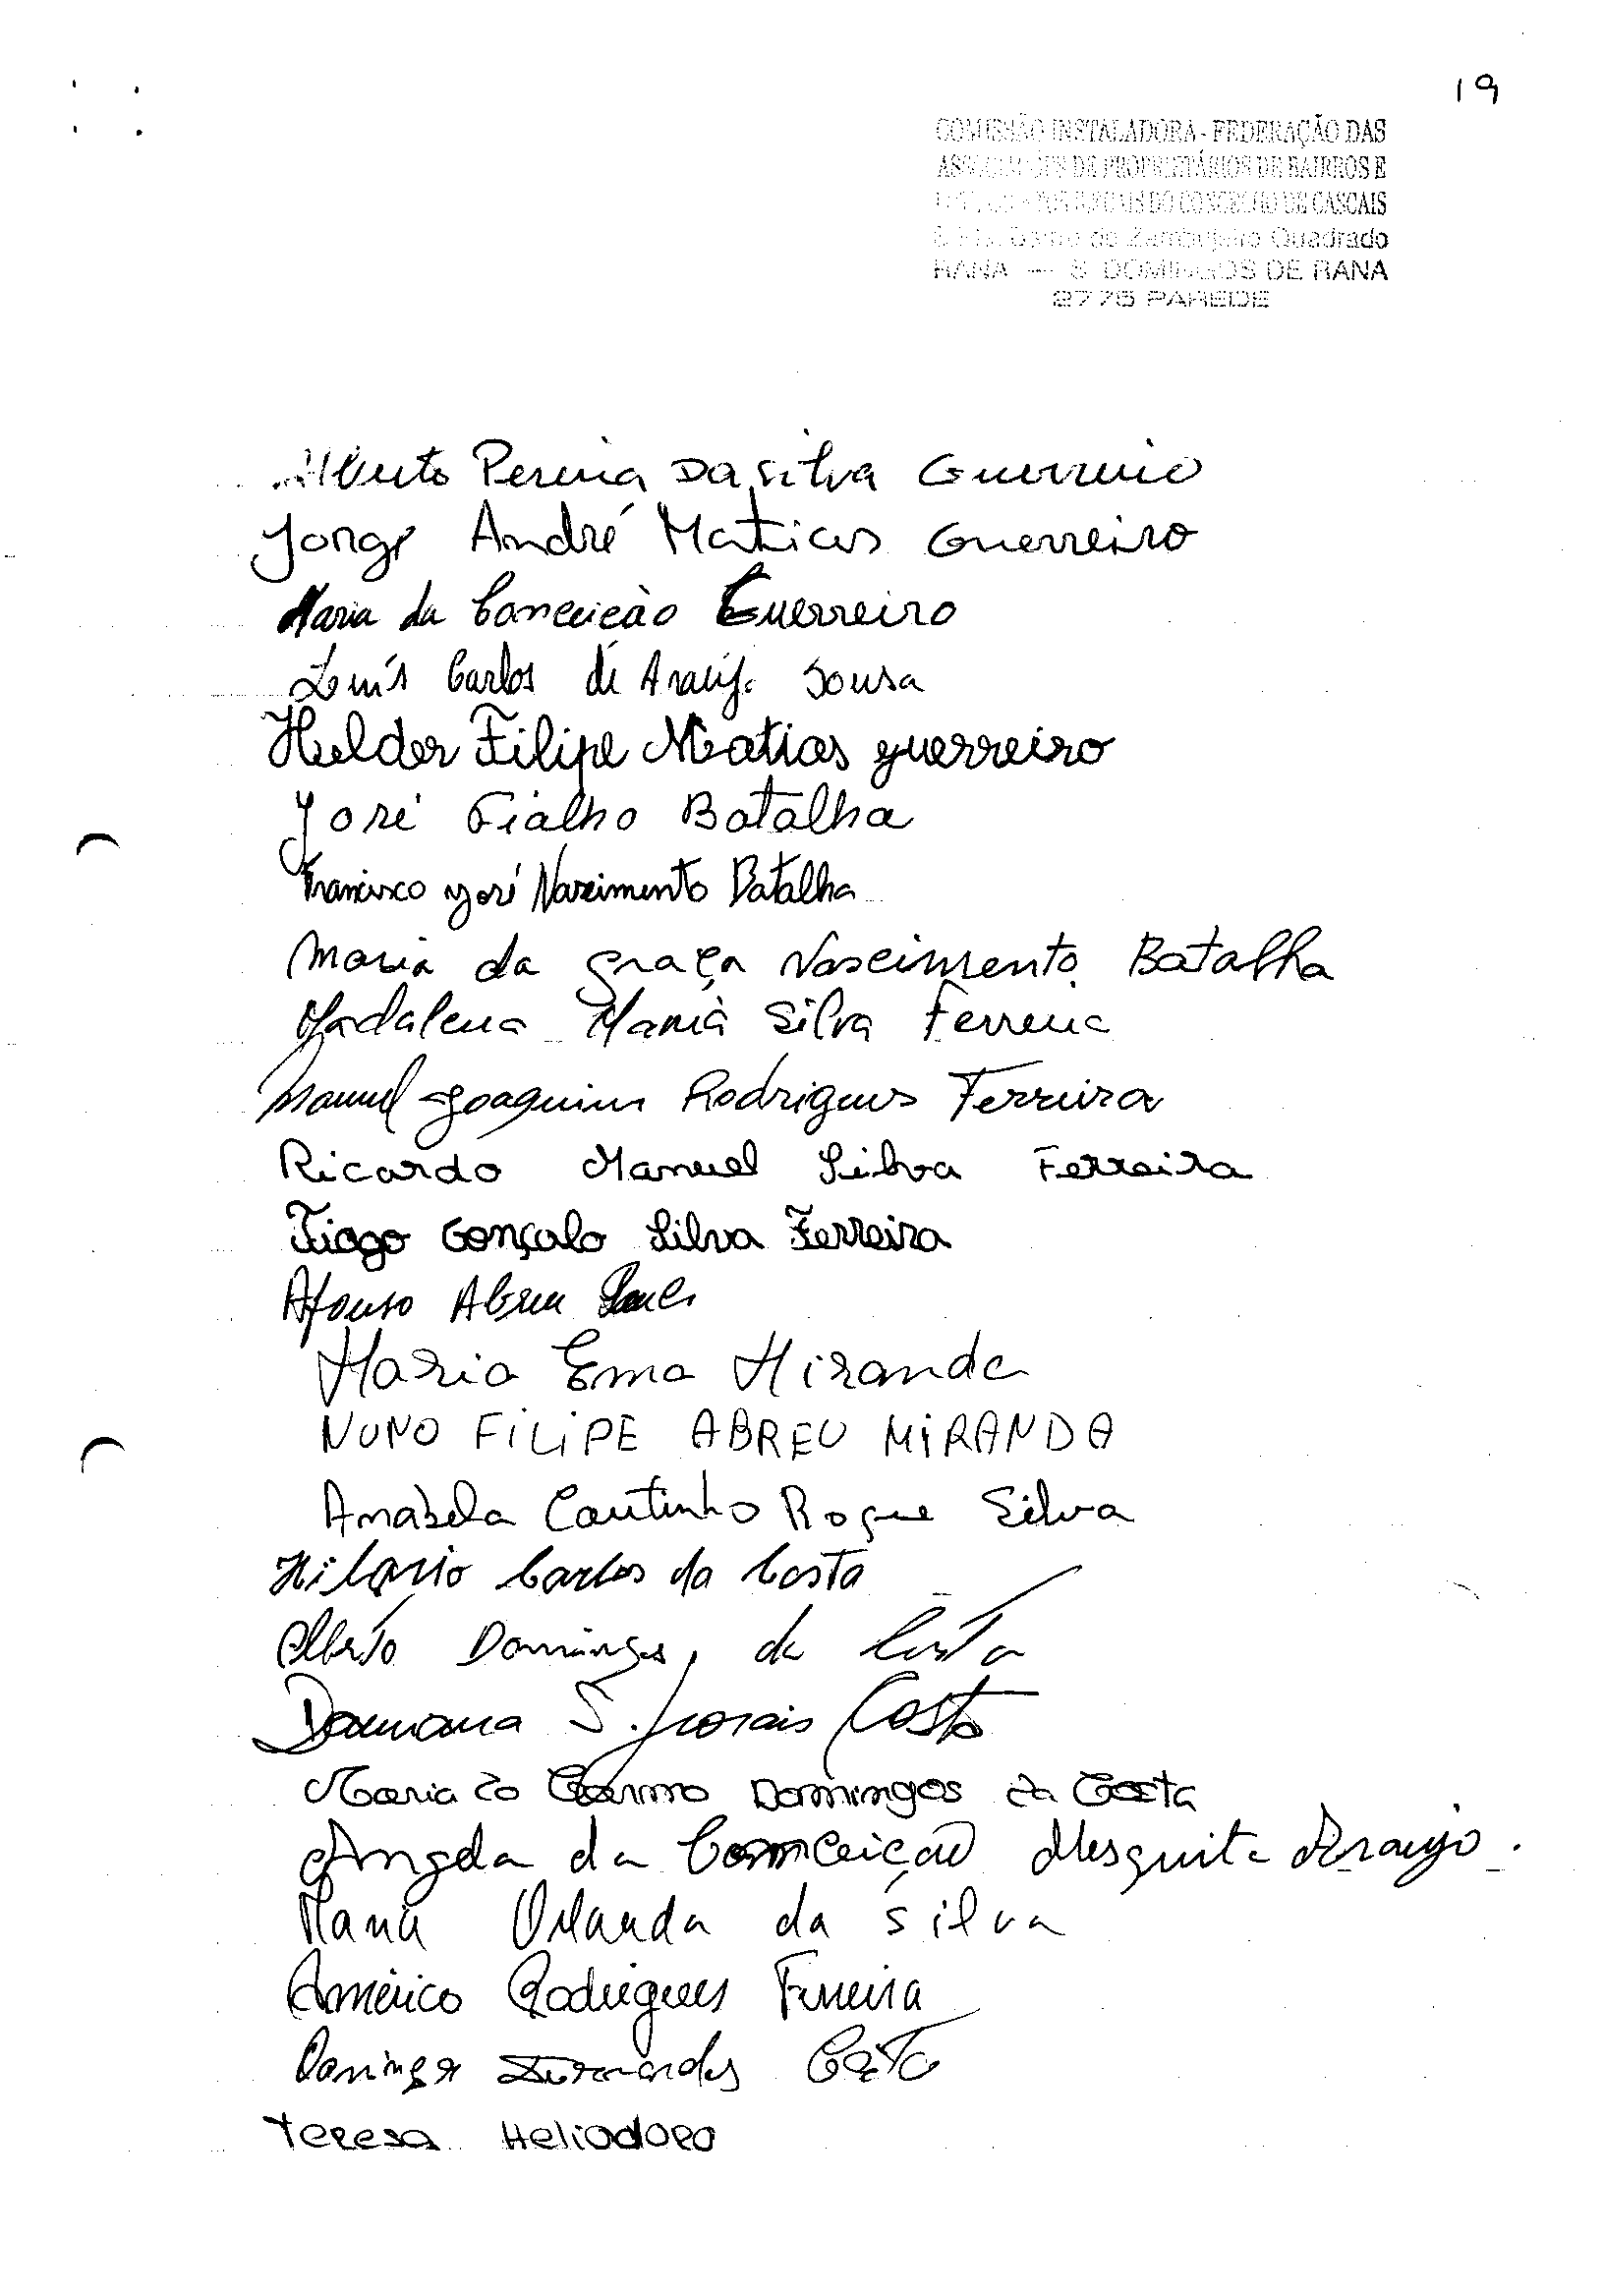 19
COMISSÃO INSTALADORA - FEDERAÇÃO DAS
ASSOCIAÇÕES DE PROPRIETÁRIOS DE BAIRROS E
DO CONCELHO DE CASCAIS
Bairro do Zambujeiro Quadrado
RANA — S. DOMINGOS DE RANA
2775 PAREDE
Alberto Pereira Da Silva Guerreiro
Jorge André Matias Guerreiro
Maria da Conceição Guerreiro
Luís Carlos de Araújo Sousa
Helder Filipe Matias guerreiro
José Fialho Batalha
Francisco José Nascimento Batalha
Maria da Graça Nascimento Batalha
Madalena Maria Silva Ferreira
Manuel Joaquim Rodrigues Ferreira
Ricardo Manuel Silva Ferreira
Tiago Gonçalo Silva Ferreira
Afonso Abreu
Maria Ema Miranda
NUNO FILIPE ABREU MIRANDA
Anabela Coutinho Roque Silva
Hilario Carlos da Costa
Alberto Domingos da Costa
Damiana S. Morais Costa
Maria do Carmo Domingos da Costa
Angela da Conceição Mesquita Araujo.
Maria Orlanda da Silva
Américo Rodrigues Ferreira
Domingos Fernandes
Teresa Heliodoro